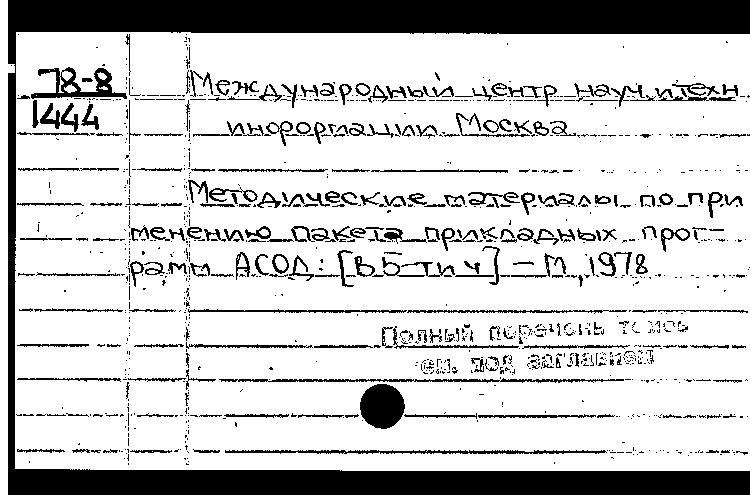 78-8
1444
Международный центр науч. и техн.
информации. Москва
Методические материалы по при
менению пакета прикладных прог-
рамм АСОД: [В 5-ти ч] - М, 1978
Полный перечень томов
см. под заглавием